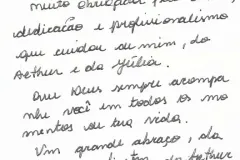 muito obrigada
dedicação e profissionalismo
que cuidou de mim, do
Arthur e da Júlia.
Que Deus sempre acompa
nhe você em todos os mo
mentos de tua vida.
Um grande abraço, da
Arthur